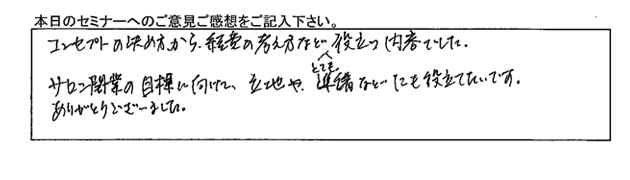 本日のセミナーへのご意見ご感想をご記入下さい。
コンセプトの決め方から、経費の考え方など とても 役立つ内容でした。
サロン開業の目標に向けて、立地や、準備などにも役立てたいです。
ありがとうございました。